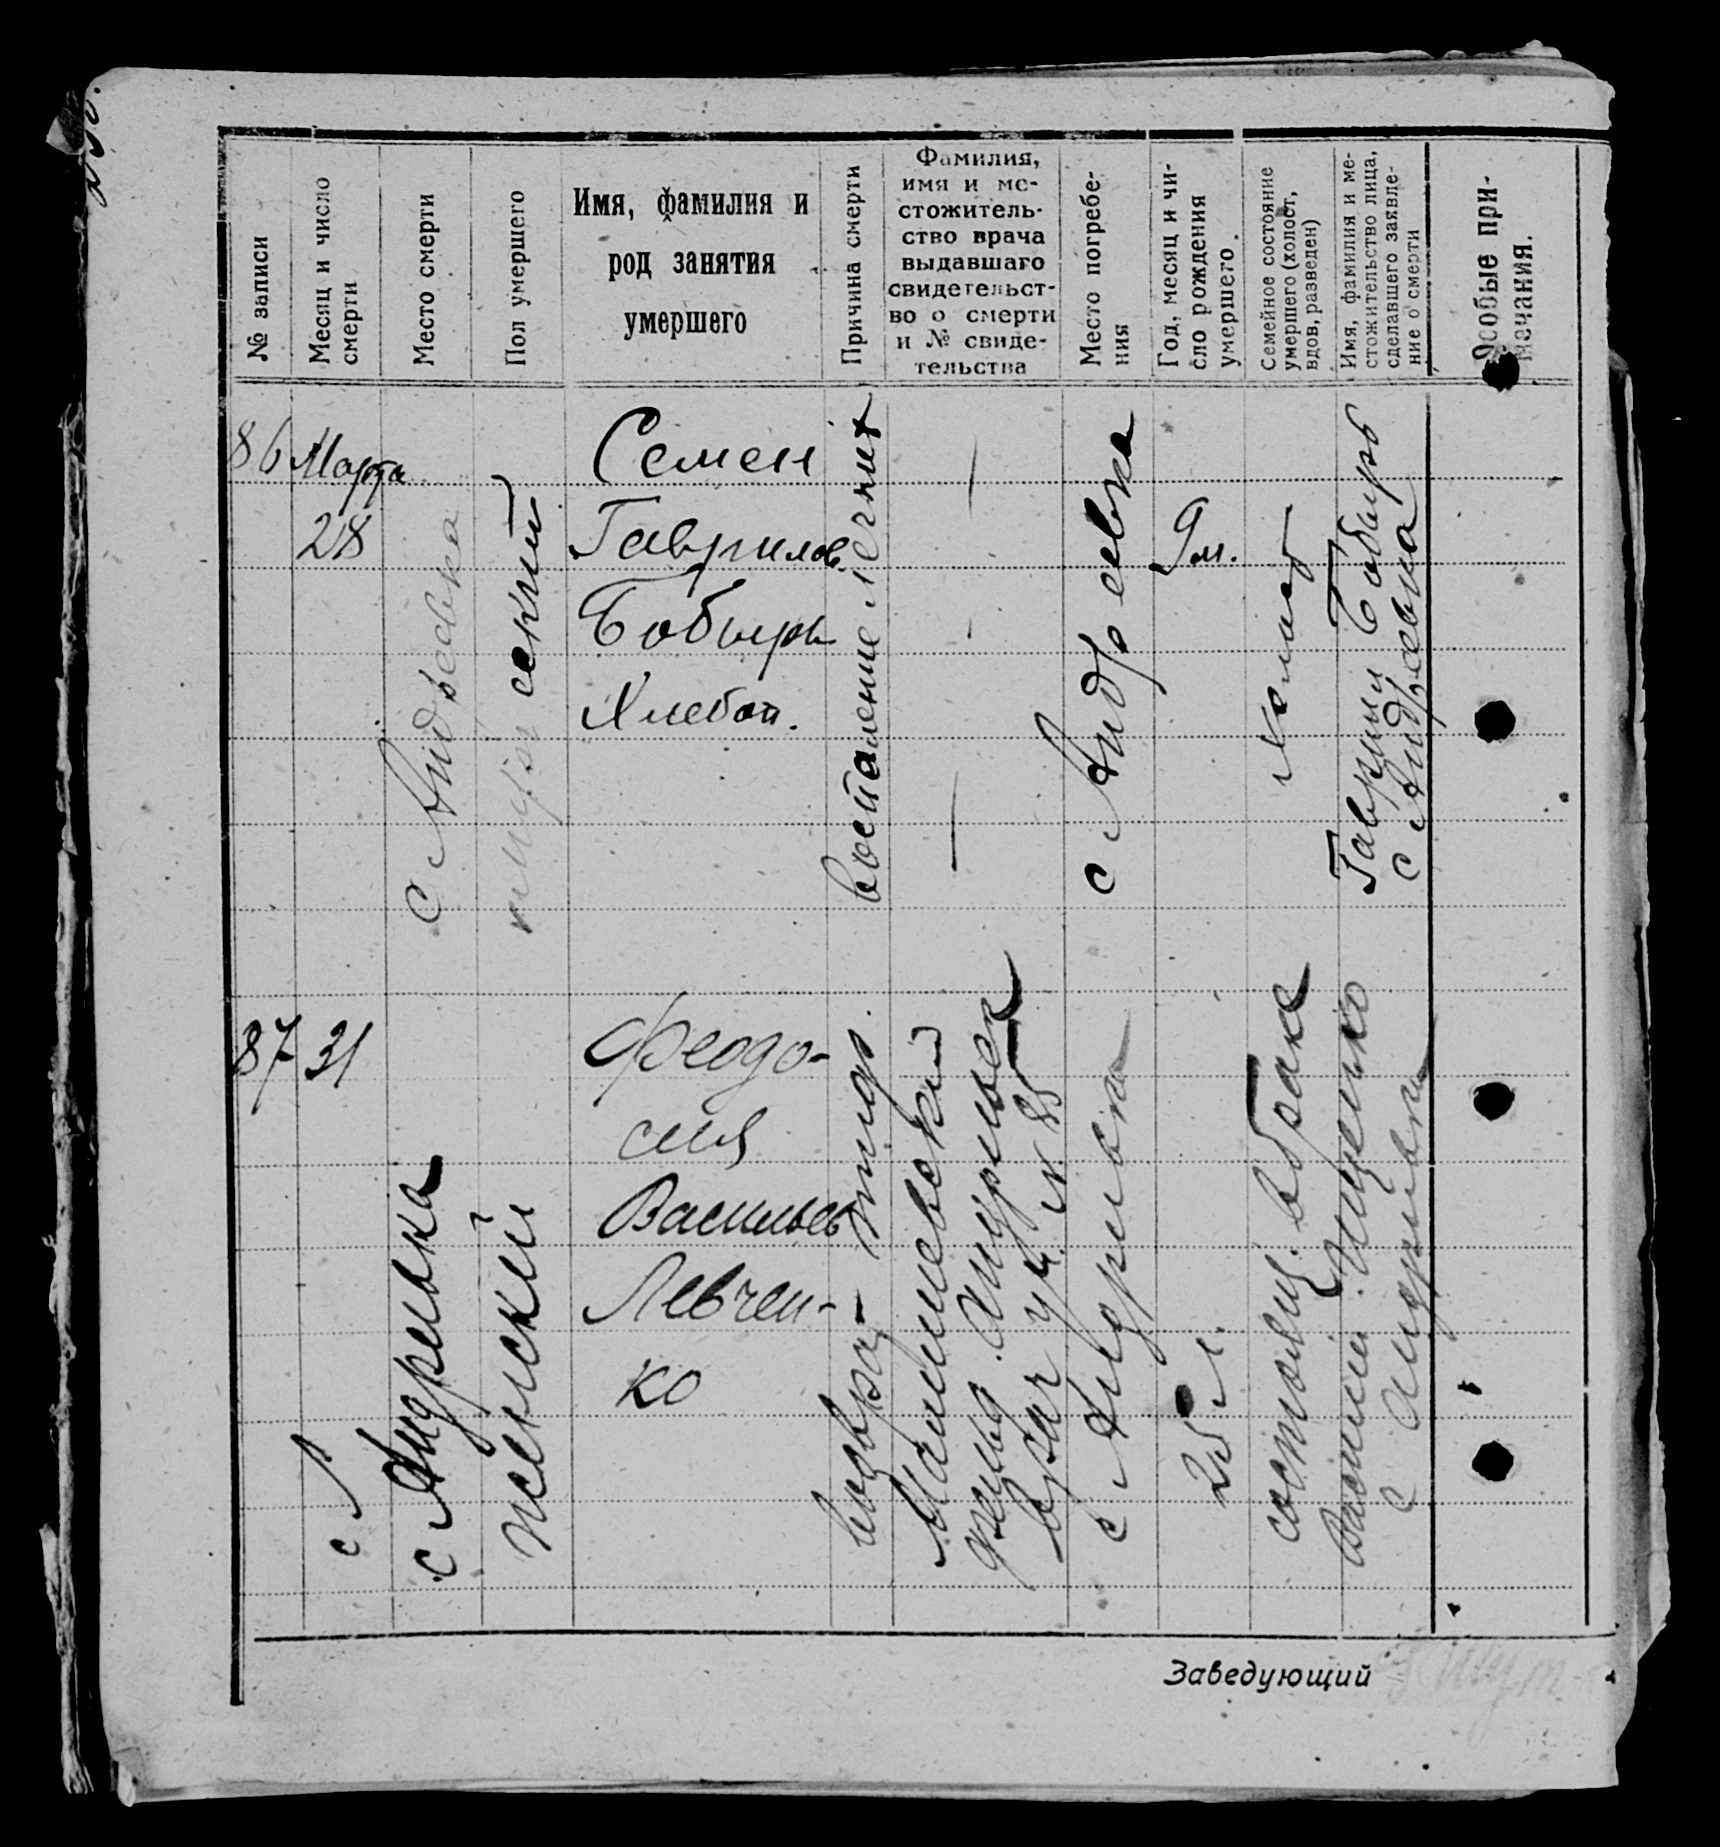 № записи
Месяц и число
смерти
Место смерти
Пол умершего
Имя, фамилия и
род занятия
умершего
Причина смерти
Фамилия,
имя и ме-
стожитель-
ство врача
выдавшаго
свидетельст-
во о смерти
и № свиде-
тельства
Место погребе-
ния
Год, месяц и чи-
сло рождения
умершего.
Семейное состояние
умершего (холост,
вдов, разведен)
Имя, фамилия и ме-
стожительство лица,
сделавшего заявле-
ние о смерти
Особые при-
мечания.
86
Марта
28
с Андреевка
Семен
Гаврилов
Бобырь
Хлебоп.
воспаление легких
—
с Андреевка
9 м.
холост
Гаврил Бобырь
с Андреевка
87
31
с Андреевка
женский
Феодо-
сия
Васильев
Левчен-
ко
возвра-
тиф.
врач
№ 85
с Андреевка
25 л.
состоящ. в браке
Василий Ищенко
с Андреевка
Заведующий